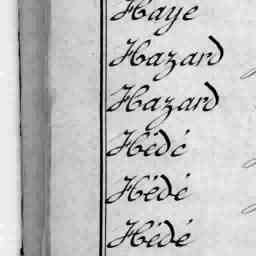 Haye
Hazard
Hazard
Hédé
Hédé
Hédé